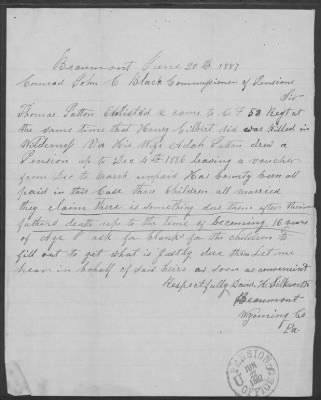 Beaumont June 20th 1887
Comrad John C Black Commissioner of Pensions
Sir
Thomas Patton Enlisted & came to Co F 53 Regt at
the same time that Henry Gilbert did was killed in
Wilderness Va His Wife Adah Patton drew a
Pension up to Dec 4th 1886 leaving a voucher
from Dec to March unpaid Has County been all
paid in this Case three Children all married
they claim there is something due them after their
fathers death up to the time of becoming 16 years
of age I ask for blanks for the children to
fill out to get what is justly due them Let me
hear in behalf of said heirs as soon as convenient
Respectfully David H. Silkworth
Beaumont
Wyoming Co
Pa
PENSION OFFICE
JUN
22
1887